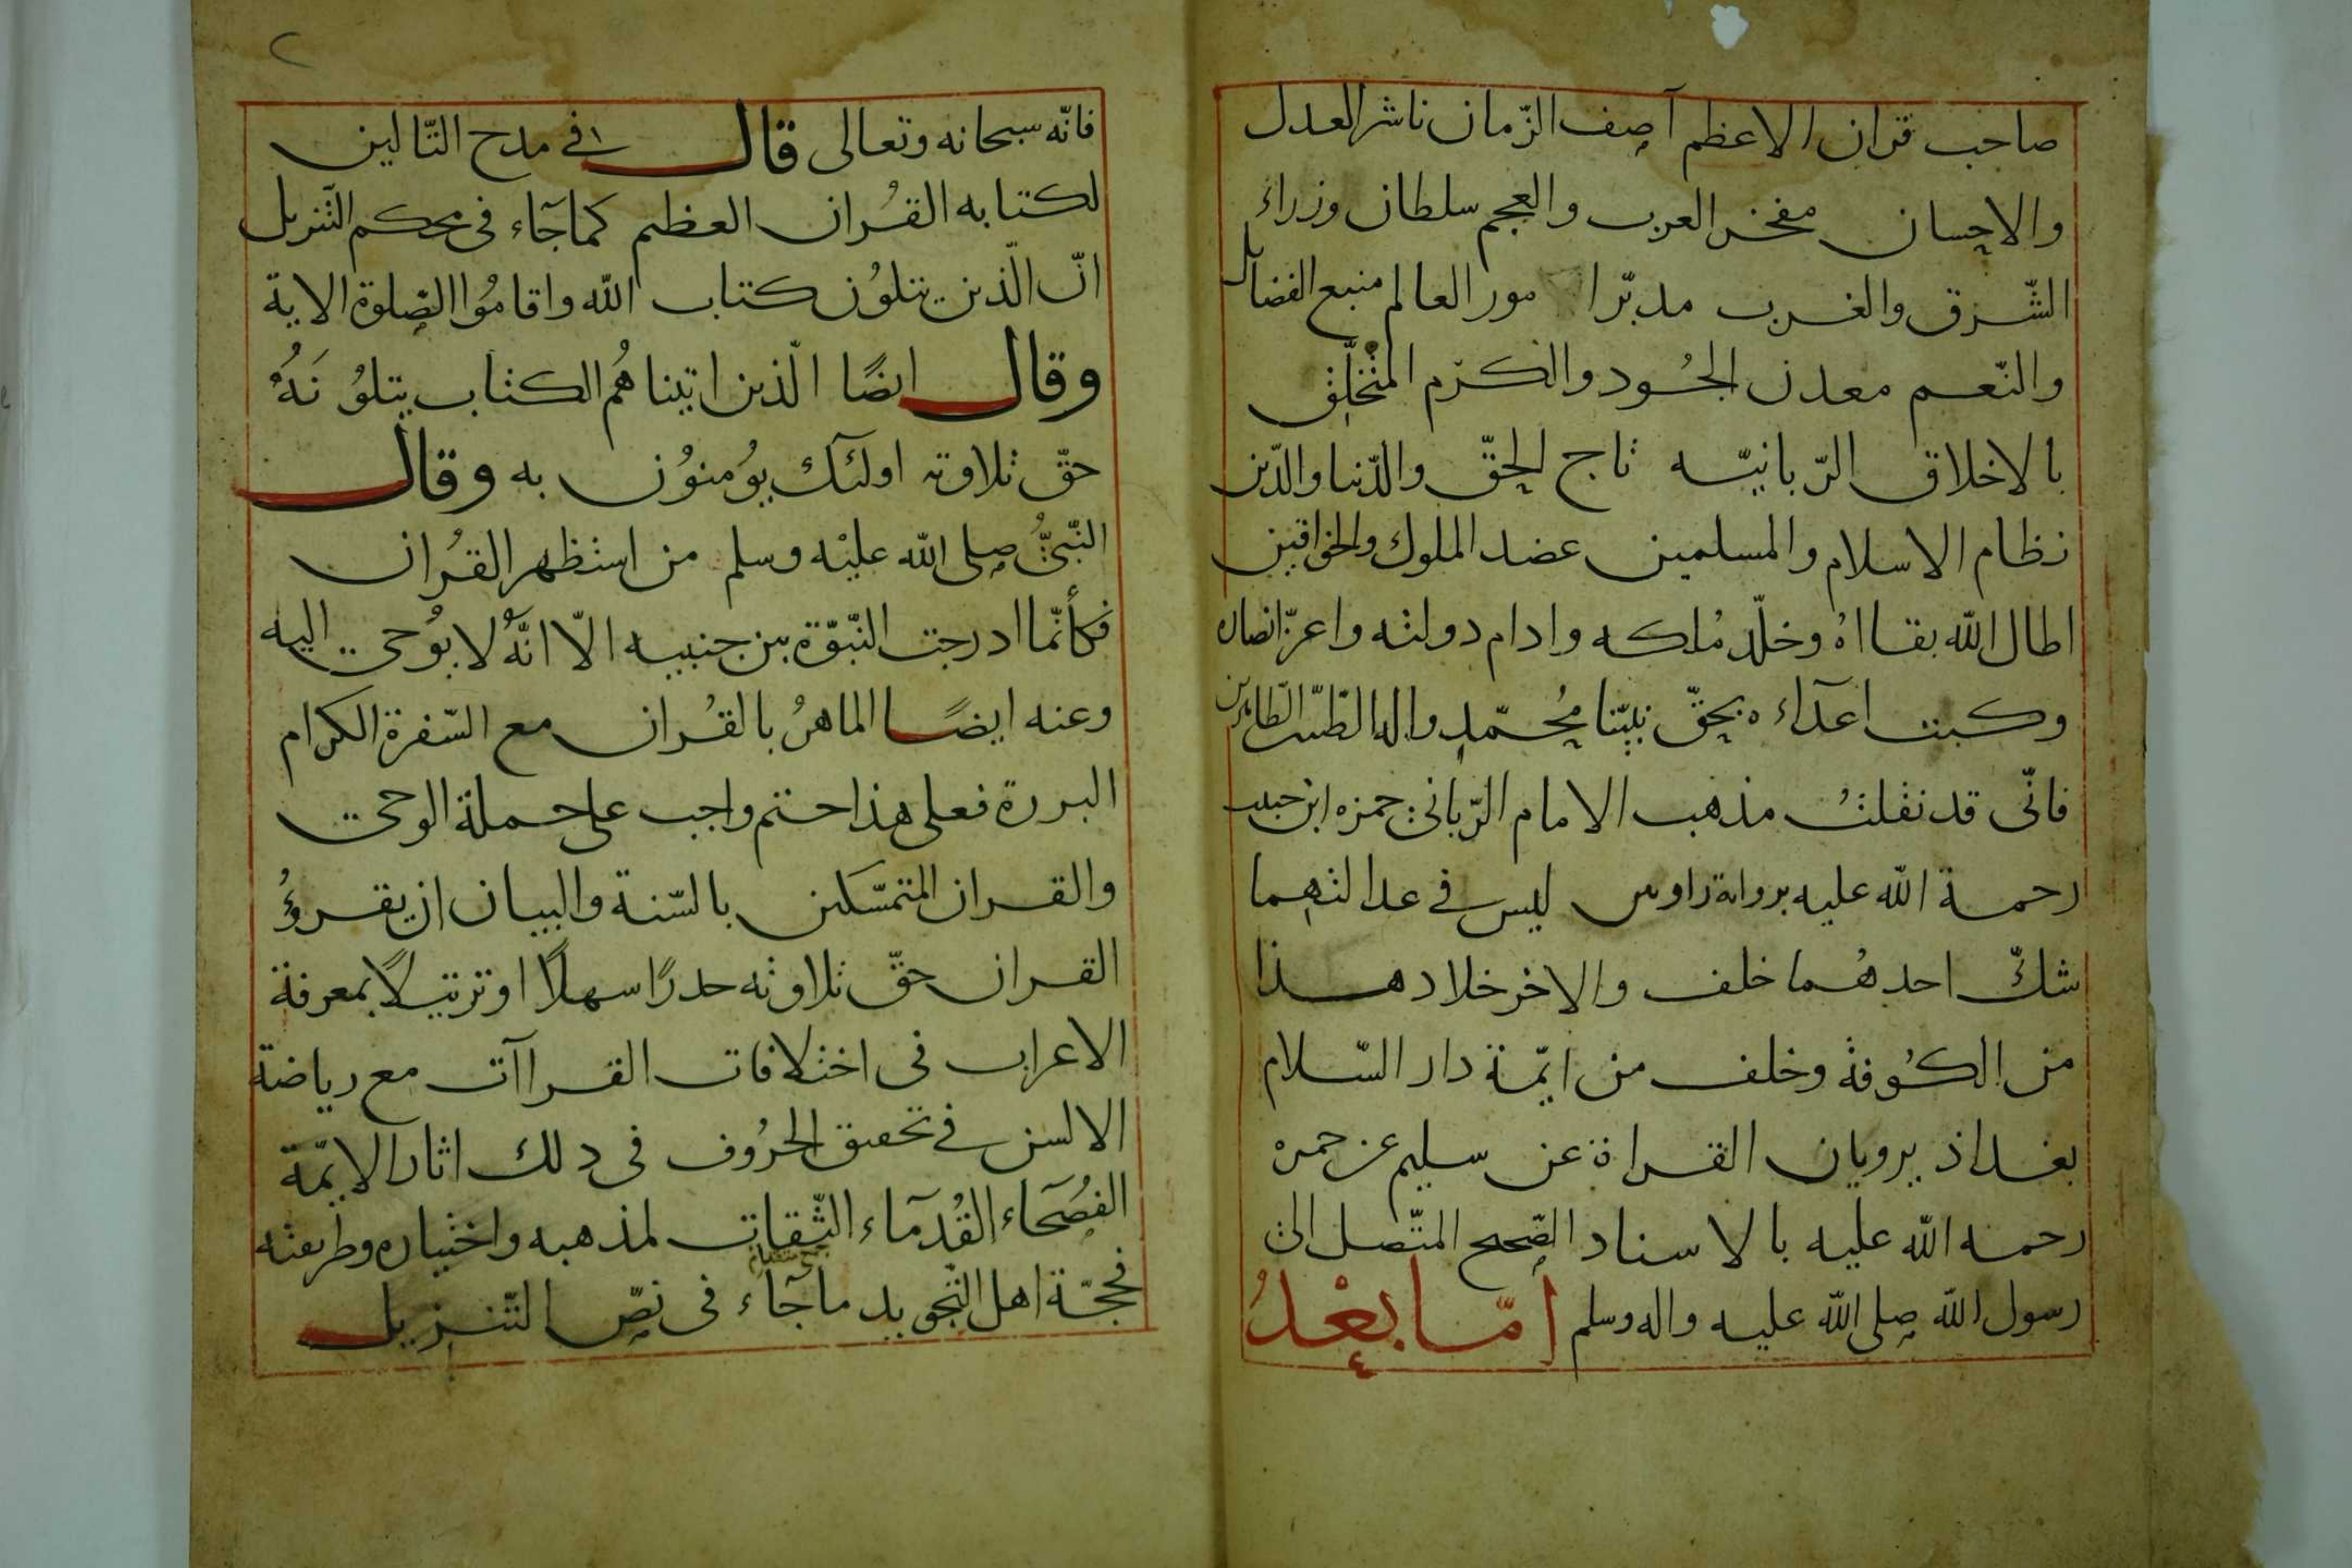 صاحب قران الاعظم آصف الزّمان ناشر العدل
والاحسان مفخر العرب والعجم سلطان وزراء
الشّرق والغرب مدبّر ا مور العالم منبع الفضايل
والنّعم معدن الجُود والكرّم المتْخلّق
بالاخلاق الرّبانيّه تاج الحقّ والدّنيا والدّين
نظام الاسلام والمسلمين عضد الملوك والخواقين
اطال الله بقااهُ وخلّد مُلكه وادام دولته واعزّ انصاره
وكبت اعدآءه بحقّ نبيّنا مُحمّد واله الطّيّبين الطّاهرين
فانّى قد نقلتُ مذهب الامام الرّبانى حمزه ابن حبيب
رحمة الله عليه برواية راويين ليس فى عدالتهما
شكّ احدهُما خلف والاخر خلاد هذا
من الكُوفة وخلف من ايمّة دار السّلام
بغداذ يرويان القراة عن سليم عن حمزه
رحمه الله عليه بالاسناد الصّحيح المتّصل الى
رسول الله صلى الله عليه واله وسلم امّا بعْدُ
٢
فانّه سبحانه وتعالى قال فى مدح التّالين
لكتابه القُران العظيم كما جآء فى محكم التّنزيل
انّ الّذين يتلوُن كتاب الله واقامُوا الصّلوة الاية
وقال ايضًا الّذين اتيناهُم الكتاب يتلوُنَهُ
حقّ تلاوته اولئك يوُمنوُن به وقال
النّبىُّ صلى الله عليْه وسلم من استظهر القُران
فكأنّما ادرجت النّبوّة بين جنبيه الّا انّهُ لا يوُحى اليه
وعنه ايضًا الماهرُ بالقُران مع السّفرة الكرام
البررة فعلى هذا حتم واجب على حملة الوحى
والقران المتمسّكين بالسّنة والبيان ان يقروُ
القران حقّ تلاوته حدرًا سهلًا او ترتيلًا بمعرفة
الاعراب فى اختلافات القراآت مع رياضة
الالسن فى تحقيق الحرُوف فى ذلك اثار الايمّة
الفُصَحاء القُدمآء الثّقات لمذهبه واختياره وطريقته
فحجّة اهل التّجويد ما جآء فى نصّ التّنزيل